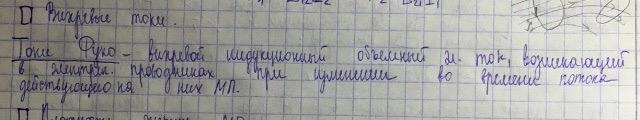 Вихревые токи.
Токи Фуко – вихревой индукционный объемный эл. ток, возникающий
в электрич. проводниках при изменении во времени потока
действующего на них МП.